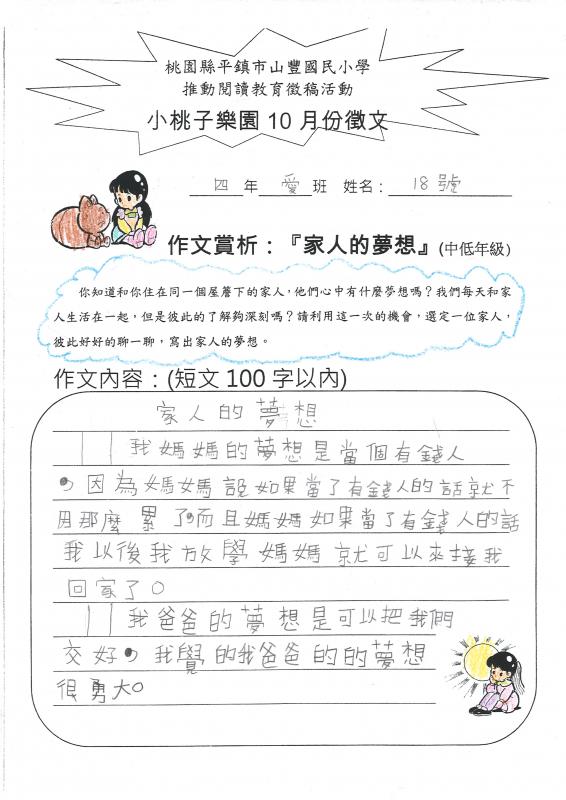 桃園縣平鎮市山豐國民小學
推動閱讀教育徵稿活動
小桃子樂園 10 月份徵文
四 年 愛 班 姓名：18號
作文賞析：『家人的夢想』(中低年級)
你知道和你住在同一個屋簷下的家人，他們心中有什麼夢想嗎？我們每天和家
人生活在一起，但是彼此的了解夠深刻嗎？請利用這一次的機會，選定一位家人，
彼此好好的聊一聊，寫出家人的夢想。
作文內容：(短文 100 字以內)
家人的夢想
我媽媽的夢想是當個有錢人
，因為媽媽說如果當了有錢人的話就不
用那麼累了，而且媽媽如果當了有錢人的話
我以後我放學媽媽就可以來接我
回家了。
我爸爸的夢想是可以把我們
交好，我覺的我爸爸的的夢想
很勇大。